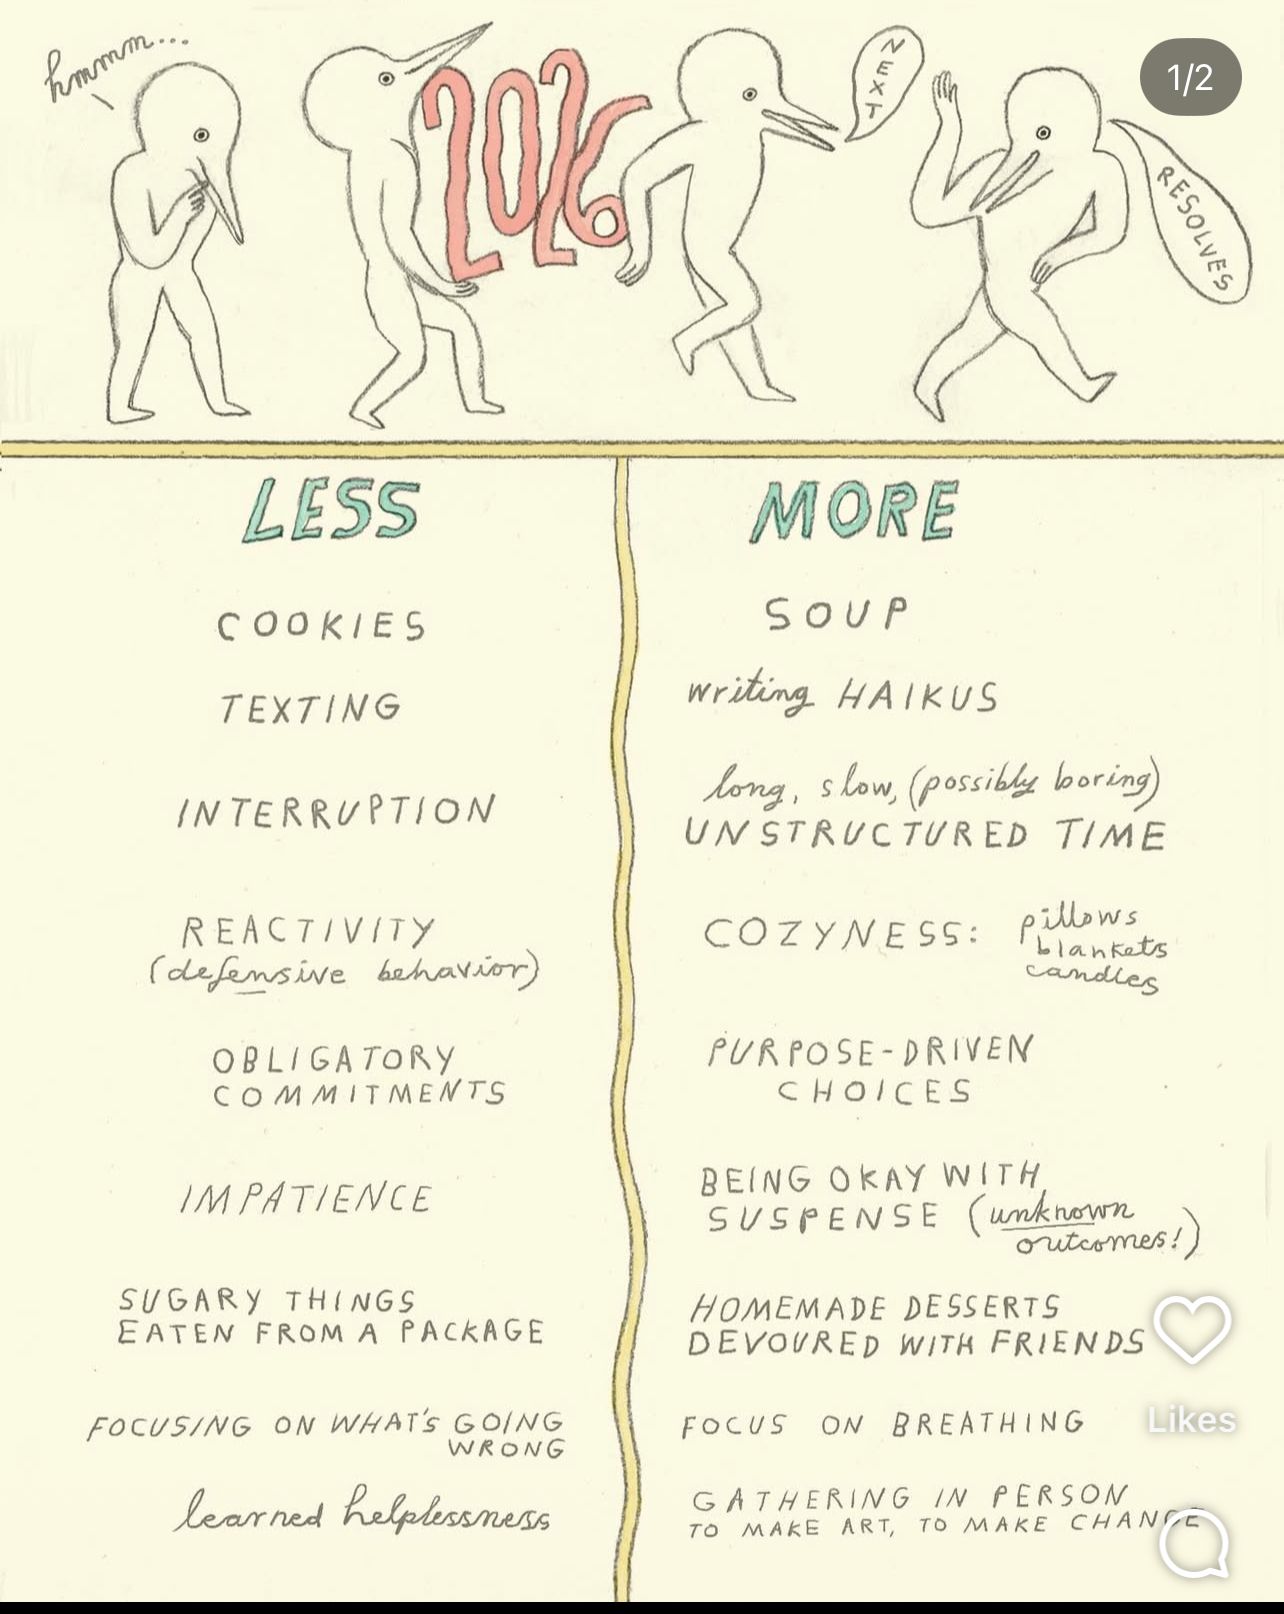 hmmm...
2026
NEXT
RESOLVES
1/2
LESS
COOKIES
TEXTING
INTERRUPTION
REACTIVITY
(defensive behavior)
OBLIGATORY
COMMITMENTS
IMPATIENCE
SUGARY THINGS
EATEN FROM A PACKAGE
FOCUSING ON WHAT'S GOING
WRONG
learned helplessness
MORE
SOUP
writing HAIKUS
long, slow, (possibly boring)
UNSTRUCTURED TIME
COZYNESS: pillows
blankets
candles
PURPOSE-DRIVEN
CHOICES
BEING OKAY WITH
SUSPENSE (unknown
outcomes!)
HOMEMADE DESSERTS
DEVOURED WITH FRIENDS
FOCUS ON BREATHING
GATHERING IN PERSON
TO MAKE ART, TO MAKE CHANGE
Likes